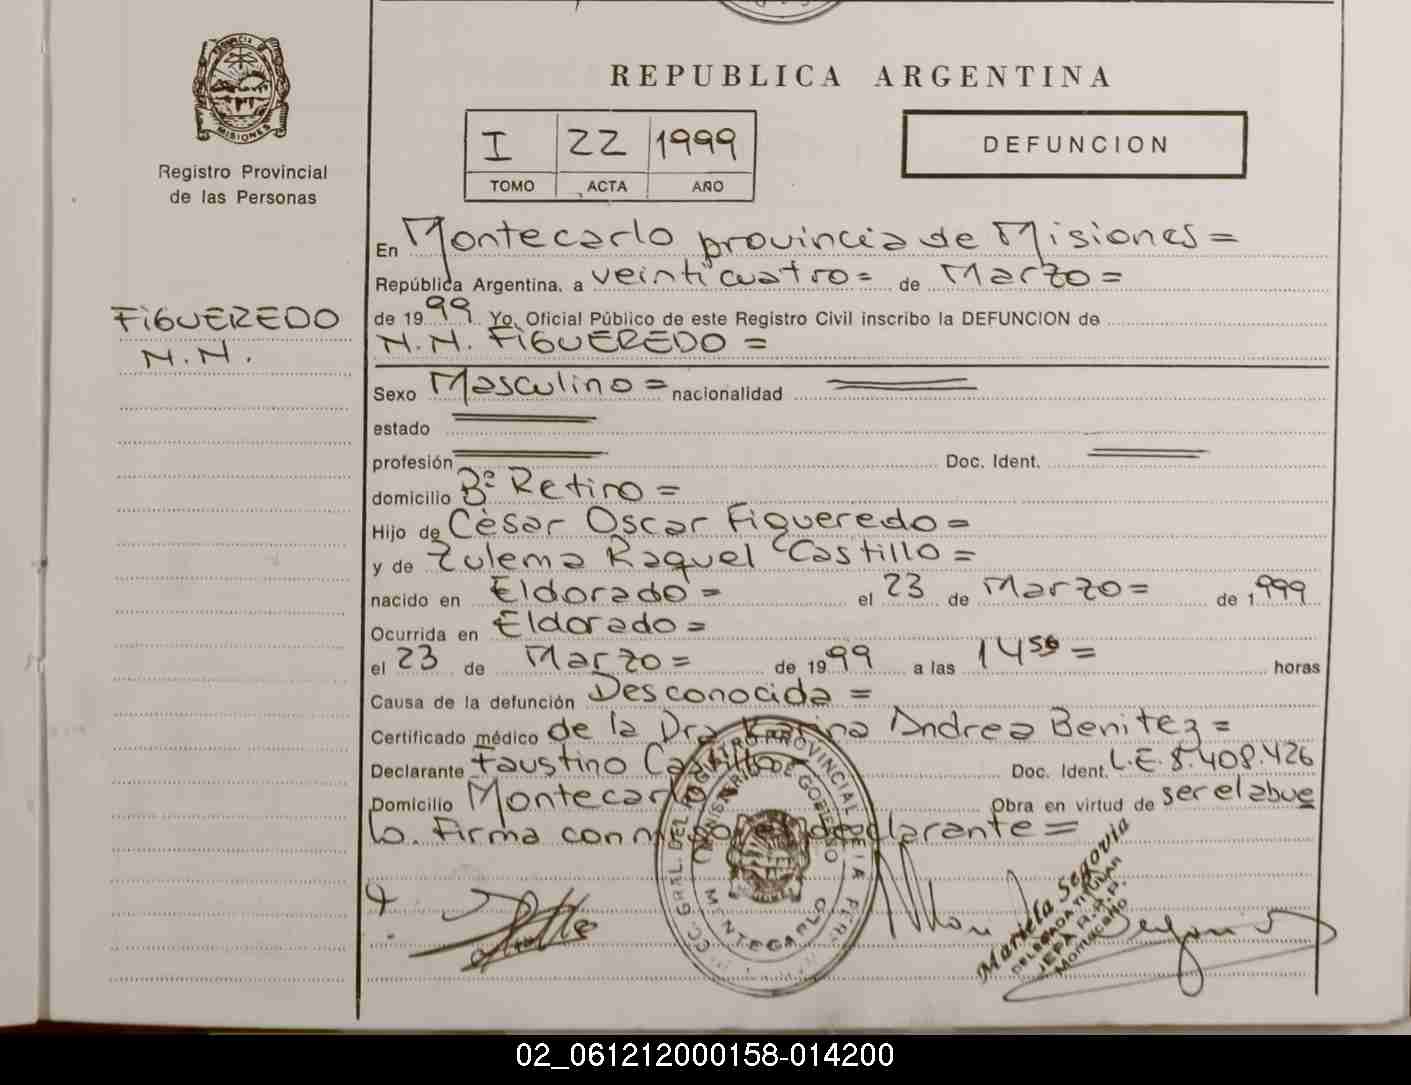 REPUBLICA ARGENTINA
PROVINCIA DE
MISIONES
Registro Provincial
de las Personas
I 22 1999
TOMO ACTA AÑO
DEFUNCION
FiGUEREDO
N.N.
En Montecarlo provincia de Misiones =
República Argentina, a veinticuatro = de Marzo =
de 1999 Yo, Oficial Público de este Registro Civil inscribo la DEFUNCION de
N.N. FiGUEREDO =
Sexo Masculino = nacionalidad
estado
profesión Doc. Ident.
domicilio Bº Retiro =
Hijo de Cèsar Oscar Figueredo =
y de Zulema Raquel Castillo =
nacido en Eldorado = el 23 de Marzo = de 1999
Ocurrida en Eldorado =
el 23 de Marzo = de 1999 a las 14 50 = horas
Causa de la defunción Desconocida =
Certificado médico de la Dra Karina Andrea Benitez =
Declarante Faustino Castillo = Doc. Ident. L.E. 8.408.426
Domicilio Montecarlo Obra en virtud de ser el abue
lo. Firma conmigo el declarante =
GRAL. DEL REGISTRO PROVINCIAL
MINISTERIO DE GOBIERNO
MONTECARLO
Mariela Segovia
DELEGADA TITULAR
Montecarlo
02_061212000158-014200